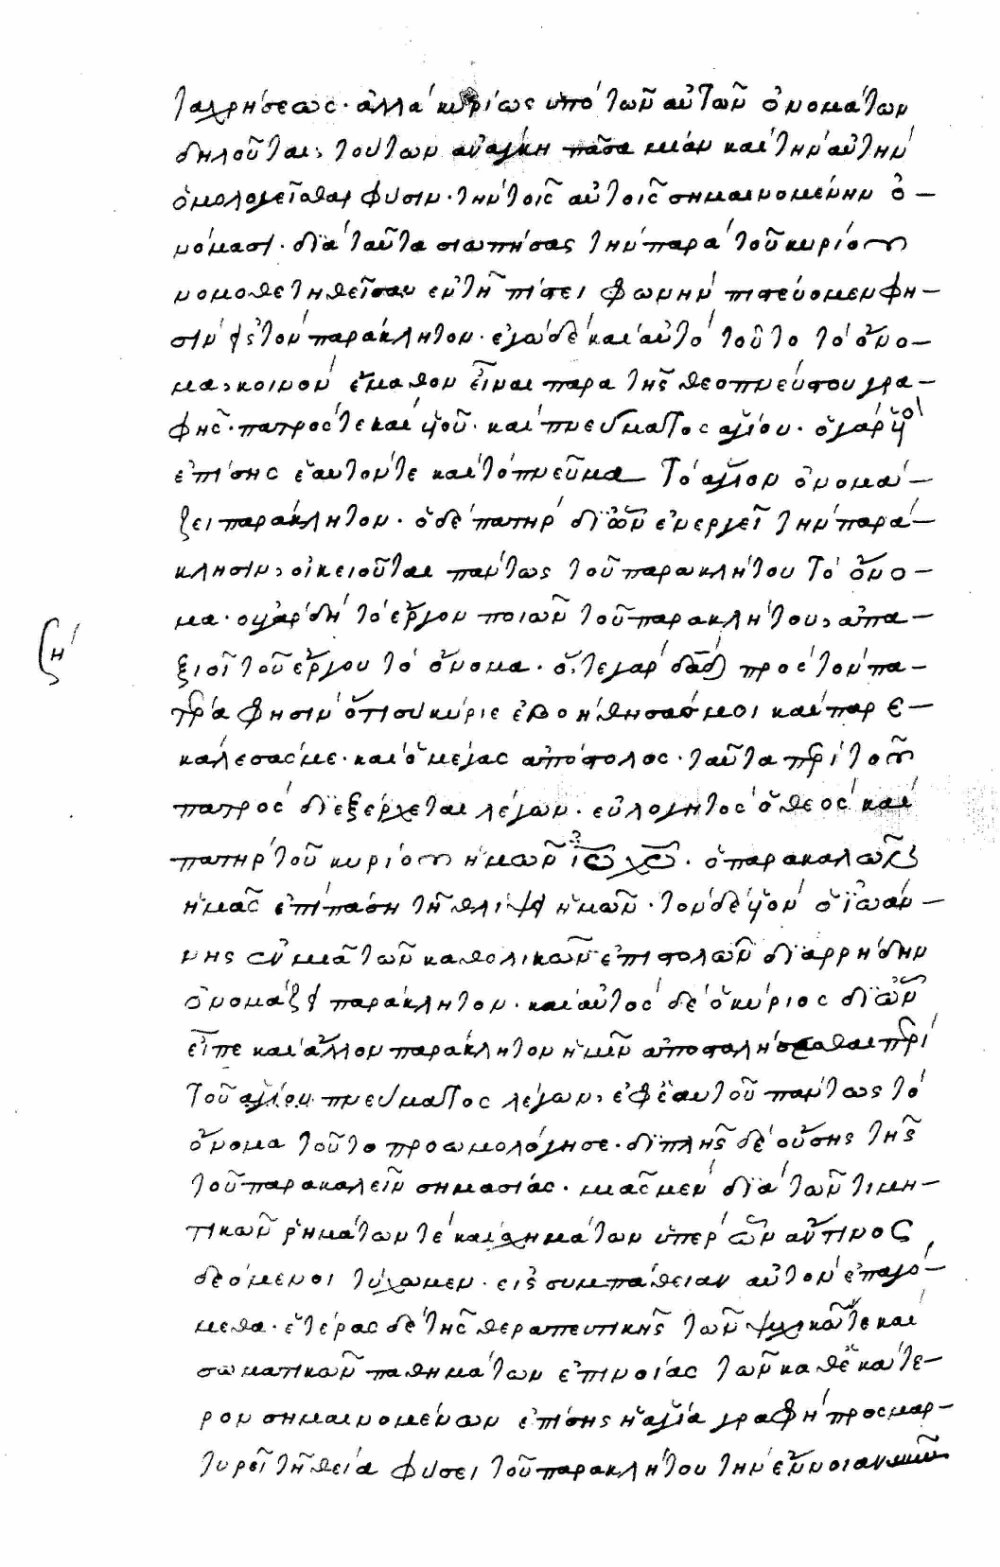 ταχρήσεως· ἀλλὰ κυρίως ὑπὸ τῶν αὐτῶν ὀνομάτων
δηλοῦται, τούτων ἀνάγκη πᾶσα μίαν καὶ τὴν αὐτὴν
ὁμολογεῖσθαι φύσιν· τὴν τοῖς αὐτοῖς σημαινομένην ὀ-
νόμασι· διὰ ταῦτα σιωπήσας τὴν παρὰ τοῦ κυρίου
νομοθετηθεῖσαν ἐν τῇ πίστει φωνὴν πιστεύομεν φη-
σὶν εἰς τὸν παράκλητον· ἐγὼ δὲ καὶ αὐτὸ τοῦτο τὸ ὄνο-
μα, κοινὸν ἔμαθον εἶναι παρὰ τῆς θεοπνεύστου γρα-
φῆς· πατρός τε καὶ ὑιοῦ· καὶ πνεύματος ἁγίου· ὁ γὰρ ὑιὸ
ἐπίσης ἑαυτόν τε καὶ τὸ πνεῦμα Τὸ ἅγιον ὀνομά-
ζει παράκλητον· ὁ δὲ πατὴρ δι ὧν ἐνεργεῖ τὴν παρά-
κλησιν, οἰκειοῦται πάντως τοῦ παρακλήτου Τὸ ὄνο-
μα· οὐ γὰρ δὴ τὸ ἔργον ποιῶν τοῦ παρακλήτου, ἀπα-
ζη
ξιοῖ τοῦ ἔργου τὸ ὄνομα· ὅ, τε γὰρ δᾱδ πρὸς τὸν πα-
τέρα φησὶν ὅτι σὺ κύριε ἐβοήθησάς μοι καὶ παρε-
κάλεσάς με· καὶ ὁ μέγας ἀπόστολος· ταῦτα περὶ τοῦ
πατρὸς διεξέρχεται λέγων· εὐλογητὸς ὁ θεὸς καὶ
πατὴρ τοῦ κυρίου ἡμῶν ἰῦ χῦ· ὁ παρακαλῶν
ἡμᾶς ἐπὶ πάσῃ τῇ θλίψει ἡμῶν· τὸν δὲ ὑιὸν ὁ ἰωάν-
νης ἐν μιᾷ τῶν καθολικῶν ἐπιστολῶν διαρρήδην
ὀνομάζει παράκλητον· καὶ αὐτὸς δὲ ὁ κύριος δι ὧν
εἶπε καὶ ἄλλον παράκλητον ἡμῖν ἀποσταλήσεσθαι περὶ
Τοῦ ἁγίου πνεύματος λέγων, ἐφ ἑαυτοῦ πάντως τὸ
ὄνομα τοῦτο προωμολόγησε· διπλῆς δὲ οὔσης τῆς
τοῦ παρακαλεῖν σημασίας· μιᾶς μὲν διὰ τῶν τιμη-
τικῶν ῥημάτων τὲ καὶ σχημάτων ὑπὲρ ὧν ἄν τινος
δεόμενοι τύχωμεν· εἰς συμπάθειαν αὐτὸν ἐπαγό-
μεθα· ἑτέρας δὲ τῆς θεραπευτικῆς τῶν ψυχικῶν τε καὶ
σωματικῶν παθημάτων ἐπινοίας τῶν καθ ἑκάτε-
ρον σημαινομένων ἐπίσης ἡ ἁγία γραφὴ προσμαρ-
τυρεῖ τῇ θείᾳ φύσει τοῦ παρακλήτου τὴν ἔννοιαν